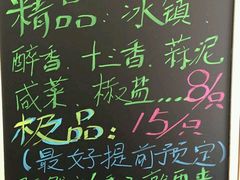 精品:冰镇
醉香.十三香.蒜泥
咸菜.椒盐...8/只
极品:15/只
(最好提前预定)